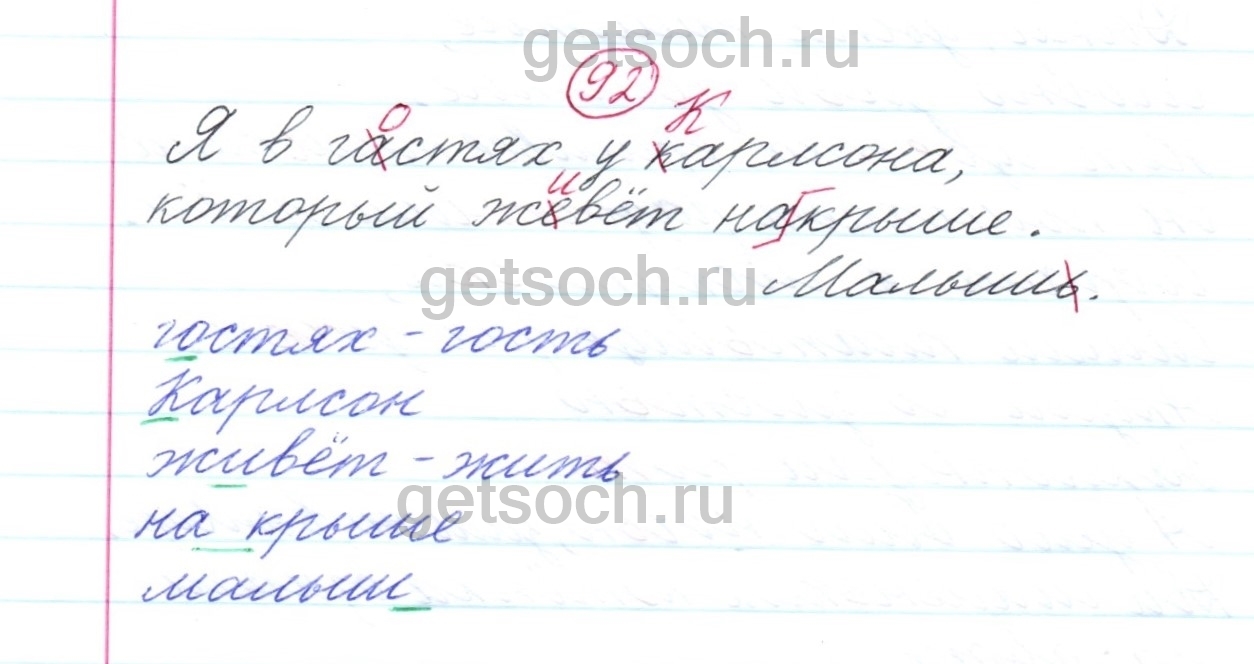 getsoch.ru
92
о К
Я в гастях у карлсона,
и
который жевёт накрыше.
getsoch.ru
Малышь.
гостях - гость
Карлсон
живёт - жить
getsoch.ru
на крыше
малыш